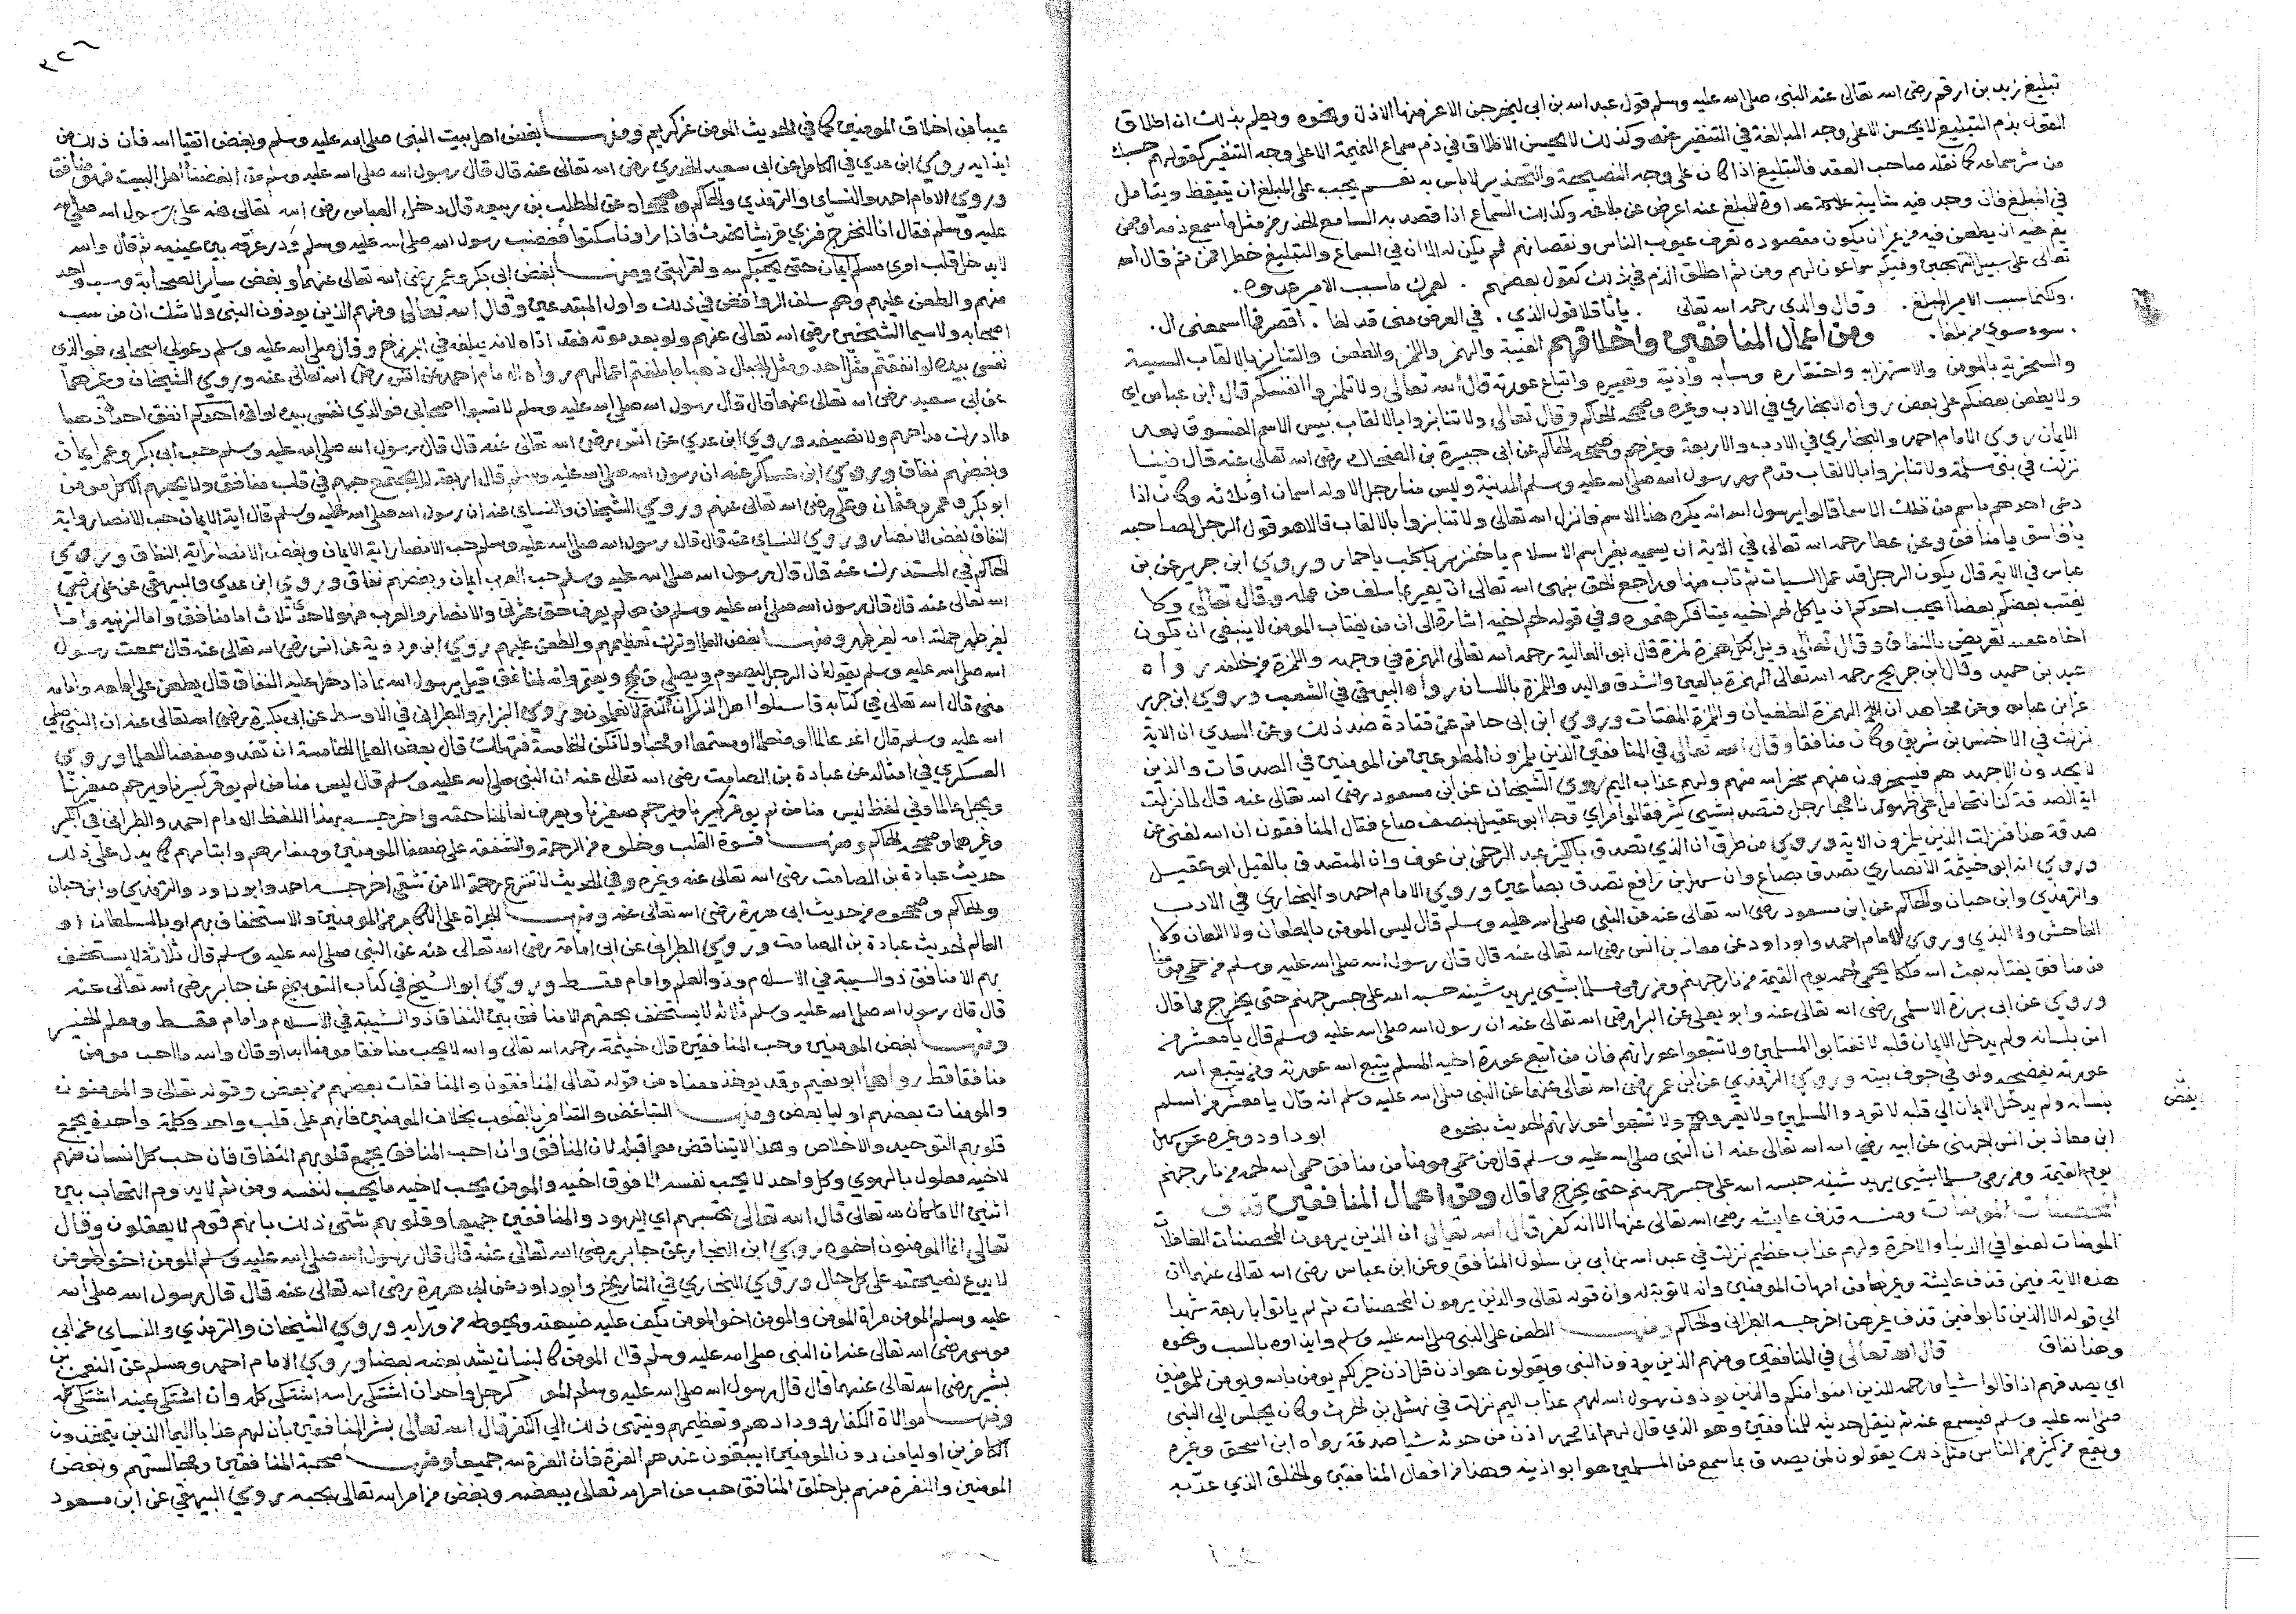 تبليغ زيد بن ارقم رضي الله تعالى عنه النبي صلى الله عليه وسلم قول عبد الله بن ابي ليخرجن الاعز منها الاذل ونحوه ويعلم بذلك ان اطلاق
القول بذم التبليغ لا يحسن الا على وجه المبالغة في التنفير عنه وكذلك لا يحسن الاطلاق في ذم سماع النميمة الا على وجه التنفير كقولهم حسبك
من شر سماعه كما نقله صاحب العقد فالتبليغ اذا كان على وجه النصيحة والتحذير لا باس به نعم يجب على المبلغ ان يتيقظ ويتامل
في المبلغ فان وجد فيه شايبة عداوة للمبلغ عنه اعرض عن بلاغه وكذلك السماع اذا قصد به السامع الحذر من مثل ما سمع ذمه او ممن
ان يطعن فيه من غير ان يكون مقصوده تعرف عيوب الناس ونقصانهم لم يكن له الا ان في السماع والتبليغ خطرا فمن ثم قال الله
تعالى على سبيل التهجين وفيكم سماعون لهم ومن ثم اطلق الذم في ذلك كقول بعضهم . لعمرك ما سبب الامر عدوه .
. ولكنما سبب الامر المبلغ . وقال والدي رحمه الله تعالى . يا ناقلا قول الذي . في العرض مني قد لغا . اقصر فما اسمعني ال .
. سوء سوى من بلغا . ومن اعمال المنافقين واخلاقهم الغيبة والهمز واللمز والطعن والتنابز بالالقاب السيية
والسخرية بالمومن والاستهزاء به واحتقاره وسبابه واذيته وتعييره واتباع عورته قال الله تعالى ولا تلمزوا انفسكم قال ابن عباس اي
ولا يطعن بعضكم على بعض رواه البخاري في الادب وغيره وصححه الحاكم وقال تعالى ولا تنابزوا بالالقاب بيس الاسم الفسوق بعد
الايمان روى الامام احمد والبخاري في الادب والاربعة وغيرهم وصححه الحاكم عن ابي جبيرة بن الضحاك رضي الله تعالى عنه قال فينا
نزلت في بني سلمة ولا تنابزوا بالالقاب قدم رسول الله صلى الله عليه وسلم المدينة وليس منا رجل الا وله اسمان او ثلاثة وكان اذا
دعي احدهم باسم من تلك الاسما قالوا يرسول الله انه يكره هذا الاسم فانزل الله تعالى ولا تنابزوا بالالقاب قالا هو قول الرجل لصاحبه
يا فاسق يا منافق وعن عطا رحمه الله تعالى في الاية ان يسميه بغير اسم الاسلام يا خنزير يا كلب يا حمار وروى ابن جرير عن بن
عباس في الاية قال يكون الرجل قد عمل السيات ثم تاب منها وراجع الحق نهى الله تعالى ان يعير بما سلف من عمله وقال تعالى ولا
يغتب بعضكم بعضا ايحب احدكم ان ياكل لحم اخيه ميتا فكرهتموه وفي قوله لحم اخيه اشارة الى ان من يغتاب المومن لا ينبغي ان يكون
اخاه تعريض بالنفاق وقال تعالى ويل لكل همزة لمزة قال ابو العالية رحمه الله تعالى الهمزة في وجهه واللمزة من خلفه رواه
عبد بن حميد وقال ابن جريج رحمه الله تعالى الهمزة بالعين والشدق واليد واللمزة باللسان رواه البيهقي في الشعب وروى ابن جرير
عن ابن عباس وعن مجاهد ان الهمزة الطعان واللمزة المغتاب وروى ابن ابي حاتم عن قتادة ضد ذلك وعن السدي ان الاية
نزلت في الاخنس بن شريق وكان منافقا وقال الله تعالى في المنافقين الذين يلمزون المطوعين من المومنين في الصدقات والذين
لا يجدون الا جهدهم فيسخرون منهم سخر الله منهم ولهم عذاب اليم روى الشيخان عن ابن مسعود رضي الله تعالى عنه قال لما نزلت
اية الصدقة كنا نتحامل على ظهورنا فجا رجل فتصدق بشي كثير فقالوا مراي وجا ابو عقيل بنصف صاع فقال المنافقون ان الله لغني عن
صدقة هذا فنزلت الذين يلمزون الاية وروي من طرق ان الذي تصدق بالكثير عبد الرحمن بن عوف وان المتصدق بالقليل ابو عقيل
وروي انه ابو خيثمة الانصاري تصدق بصاع وان سهل بن رافع تصدق بصاعين وروى الامام احمد والبخاري في الادب
والترمذي وابن حبان والحاكم عن ابن مسعود رضي الله تعالى عنه عن النبي صلى الله عليه وسلم قال ليس المومن بالطعان ولا اللعان ولا
الفاحش ولا البذي وروى الامام احمد وابو داود عن معاذ بن انس رضي الله تعالى عنه قال قال رسول الله صلى الله عليه وسلم من حمى مومنا
من منافق يغتابه بعث الله ملكا يحمي لحمه يوم القيمة من نار جهنم ومن رمى مسلما بشي يريد شينه حبسه الله على جسر جهنم حتى يخرج مما قال
وروى عن ابي برزة الاسلمي رضي الله تعالى عنه وابو يعلى عن البرا رضي الله تعالى عنه ان رسول الله صلى الله عليه وسلم قال يا معشر من
امن بلسانه ولم يدخل الايمان قلبه لا تغتابوا المسلمين ولا تتبعوا عوراتهم فان من اتبع عورة اخيه المسلم يتبع الله عورته ومن يتبع الله
عورته يفضحه ولو في جوف بيته وروى الترمذي عن ابن عمر رضي الله تعالى عنهما عن النبي صلى الله عليه وسلم انه قال يا معشر من اسلم
بلسانه ولم يدخل الايمان الى قلبه لا توذوا المسلمين ولا تعيروهم ولا تتبعوا عوراتهم الحديث بنحوه ابو داود وغيره عن سهل
ابن معاذ بن انس الجهني عن ابيه رضي الله تعالى عنه ان النبي صلى الله عليه وسلم قال من حمى مومنا من منافق حمى الله لحمه من نار جهنم
يوم القيمة ومن رمى مسلما بشي يريد شينه حبسه الله على جسر جهنم حتى يخرج مما قال ومن اعمال المنافقين قذف
المحصنات المومنات ومنه قذف عايشة رضي الله تعالى عنها الا انه كفر قال الله تعالى ان الذين يرمون المحصنات الغافلات
المومنات لعنوا في الدنيا والاخرة ولهم عذاب عظيم نزلت في عبد الله بن ابي بن سلول المنافق وعن ابن عباس رضي الله تعالى عنهما ان
هذه الاية فيمن قذف عايشة وغيرها من امهات المومنين وانه لا توبة له وان قوله تعالى والذين يرمون المحصنات ثم لم ياتوا باربعة شهدا
الى قوله الا الذين تابوا فيمن قذف غيرهن اخرجه الطبراني والحاكم ومنها الطعن على النبي صلى الله عليه وسلم وايذاوه بالسب ونحوه
وهذا نفاق قال الله تعالى في المنافقين ومنهم الذين يوذون النبي ويقولون هو اذن قل اذن خير لكم يومن بالله ويومن للمومنين
اي يصدقهم اذا قالوا شيا ورحمة للذين امنوا منكم والذين يوذون رسول الله لهم عذاب اليم نزلت في نبتل بن الحرث وكان يجلس الى النبي
صلى الله عليه وسلم فيسمع عنه ثم ينقل حديثه للمنافقين وهو الذي قال لهم انما محمد اذن من حدثه شيا صدقه رواه ابن اسحق وغيره
ويقع من كثير من الناس مثل ذلك يقولون لمن يصدق بما سمع من المسلمين هو ابو اذينة وهذا من افعال المنافقين والخلق الذي عدته
بغض
٣٢٦
عيبا من اخلاق المومنين كما في الحديث المومن غر كريم ومنها بغض اهل بيت النبي صلى الله عليه وسلم وبغض اتقيا الله فان ذلك من
ايذايه روى ابن عدي في الكامل عن ابي سعيد الخدري رضي الله تعالى عنه قال قال رسول الله صلى الله عليه وسلم من ابغضنا اهل البيت فهو منافق
وروى الامام احمد والنساي والترمذي والحاكم وصححاه عن المطلب بن ربيعة قال دخل العباس رضي الله تعالى عنه على رسول الله صلى الله
عليه وسلم فقال انا لنخرج فنرى قريشا تحدث فاذا راونا سكتوا فغضب رسول الله صلى الله عليه وسلم ودر عرق بين عينيه ثم قال والله
لا يدخل قلب امرئ مسلم ايمان حتى يحبكم لله ولقرابتي ومنها بغض ابي بكر وعمر رضي الله تعالى عنهما وبغض ساير الصحابة وسب واحد
منهم والطعن عليهم وهم سلف الروافض في ذلك واول المبتدعين وقال الله تعالى ومنهم الذين يوذون النبي ولا شك ان من سب
اصحابه ولا سيما الشيخين رضي الله تعالى عنهم ولو بعد موته فقد اذاه لانه يبلغه في البرزخ وقال صلى الله عليه وسلم دعوا لي اصحابي فوالذي
نفسي بيده لو انفقتم مثل احد ومثل الجبال ذهبا ما بلغتم اعمالهم رواه الامام احمد عن انس رضي الله تعالى عنه وروى الشيخان وغيرهما
عن ابي سعيد رضي الله تعالى عنهما قال قال رسول الله صلى الله عليه وسلم لا تسبوا اصحابي فوالذي نفسي بيده لو ان احدكم انفق احدا ذهبا
ما ادرك مد احدهم ولا نصيفه وروى ابن عدي عن انس رضي الله تعالى عنه قال قال رسول الله صلى الله عليه وسلم حب ابي بكر وعمر ايمان
وبغضهم نفاق وروى ابن عساكر عنه ان رسول الله صلى الله عليه وسلم قال اربعة لا يجتمع حبهم في قلب منافق ولا يحبهم الا كل مومن
ابو بكر وعمر وعثمان وعلي رضي الله تعالى عنهم وروى الشيخان والنساي عنه ان رسول الله صلى الله عليه وسلم قال اية الايمان حب الانصار واية
النفاق بغض الانصار وروى النساي عنه قال قال رسول الله صلى الله عليه وسلم حب الانصار اية الايمان وبغض الانصار اية النفاق وروى
الحاكم في المستدرك عنه قال قال رسول الله صلى الله عليه وسلم حب العرب ايمان وبغضهم نفاق وروى ابن عدي والبيهقي عن علي رضي
الله تعالى عنه قال قال رسول الله صلى الله عليه وسلم من لم يعرف حق عترتي والانصار والعرب فهو لاحد ثلاث اما منافق واما لزنية واما
لغير طهر حملته امه لغير طهر ومنها بغض العلما وترك تعظيمهم والطعن عليهم روى ابن مردوية عن انس رضي الله تعالى عنه قال سمعت رسول
الله صلى الله عليه وسلم يقول ان الرجل ليصوم ويصلي ويحج ويعتمر وانه لمنافق قيل يرسول الله بماذا دخل عليه النفاق قال يطعن على امامه وامامه
من قال الله تعالى في كتابه فاسئلوا اهل الذكر ان كنتم لا تعلمون وروى البزار والطبراني في الاوسط عن ابي بكرة رضي الله تعالى عنه ان النبي صلى
الله عليه وسلم قال اغد عالما او متعلما او مستمعا او محبا ولا تكن الخامسة فتهلك قال بعض العلما الخامسة ان تبغض العلما وروى
العسكري في امثاله عن عبادة بن الصامت رضي الله تعالى عنه ان النبي صلى الله عليه وسلم قال ليس منا من لم يوقر كبيرنا ويرحم صغيرنا
ويجل عالمنا وفي لفظ ليس منا من لم يوقر كبيرنا ويرحم صغيرنا ويعرف لعالمنا حقه واخرجه بهذا اللفظ الامام احمد والطبراني في الكبير
وغيرهما وصححه الحاكم ومنها قسوة القلب وخلوه من الرحمة والشفقة على ضعفا المومنين وصغارهم وايتامهم كما يدل على ذلك
حديث عبادة بن الصامت رضي الله تعالى عنه وغيره وفي الحديث لا تنزع رحمة الا من شقي اخرجه احمد وابو داود والترمذي وابن حبان
والحاكم وصححوه من حديث ابي هريرة رضي الله تعالى عنه ومنها الجراة على الاكابر من المومنين والاستخفاف بهم او بالسلطان او
العالم لحديث عبادة بن الصامت وروى الطبراني عن ابي امامة رضي الله تعالى عنه عن النبي صلى الله عليه وسلم قال ثلاثة لا يستخف
بهم الا منافق ذو الشيبة في الاسلام وذو العلم وامام مقسط وروى ابو الشيخ في كتاب التوبيخ عن جابر رضي الله تعالى عنه
قال قال رسول الله صلى الله عليه وسلم ثلاثة لا يستخف بحقهم الا منافق بين النفاق ذو الشيبة في الاسلام وامام مقسط ومعلم الخير
ومنها بغض المومنين وحب المنافقين قال خيثمة رحمه الله تعالى والله لا يحب منافقا مومن ابدا وقال والله ما احب مومن
منافقا قط رواهما ابو نعيم وقد يوخذ معناه من قوله تعالى المنافقون والمنافقات بعضهم من بعض وقوله تعالى والمومنون
والمومنات بعضهم اوليا بعض ومنها التباغض والتنافر بالقلوب بخلاف المومنين فانهم على قلب واحد وكلمة واحدة يجمع
قلوبهم التوحيد والاخلاص وهذا لا يتناقض مع ما قبله لان المنافق وان احب المنافق يجمع قلوبهم النفاق فان حب كل انسان منهم
لاخيه معلول بالهوى وكل واحد لا يحب نفسه الا فوق اخيه والمومن يحب لاخيه ما يحب لنفسه ومن ثم لا يدوم التحاب بين
اثنين الا ما كان لله تعالى قال الله تعالى تحسبهم اي اليهود والمنافقين جميعا وقلوبهم شتى ذلك بانهم قوم لا يعقلون وقال
تعالى انما المومنون اخوة روى ابن النجار عن جابر رضي الله تعالى عنه قال قال رسول الله صلى الله عليه وسلم المومن اخو المومن
لا يدع نصيحته على كل حال وروى البخاري في التاريخ وابو داود عن ابي هريرة رضي الله تعالى عنه قال قال رسول الله صلى الله
عليه وسلم المومن مراة المومن والمومن اخو المومن يكف عليه ضيعته ويحوطه من ورايه وروى الشيخان والترمذي والنساي عن ابي
موسى رضي الله تعالى عنه ان النبي صلى الله عليه وسلم قال المومن كالبنيان يشد بعضه بعضا وروى الامام احمد ومسلم عن النعمن بن
بشير رضي الله تعالى عنهما قال قال رسول الله صلى الله عليه وسلم كرجل واحد ان اشتكى راسه اشتكى كله وان اشتكى عينه اشتكى كله
ومنها موالاة الكفار وودادهم وتعظيمهم وينتهي ذلك الى الكفر قال الله تعالى بشر المنافقين بان لهم عذابا اليما الذين يتخذون
الكافرين اوليا من دون المومنين ايبتغون عندهم العزة فان العزة لله جميعا ومنها صحبة المنافقين ومجالستهم وبغض
المومنين والنفرة منهم بل خلق المنافق حب من امر الله تعالى ببغضه وبغض من امر الله تعالى بحبه روى البيهقي عن ابن مسعود